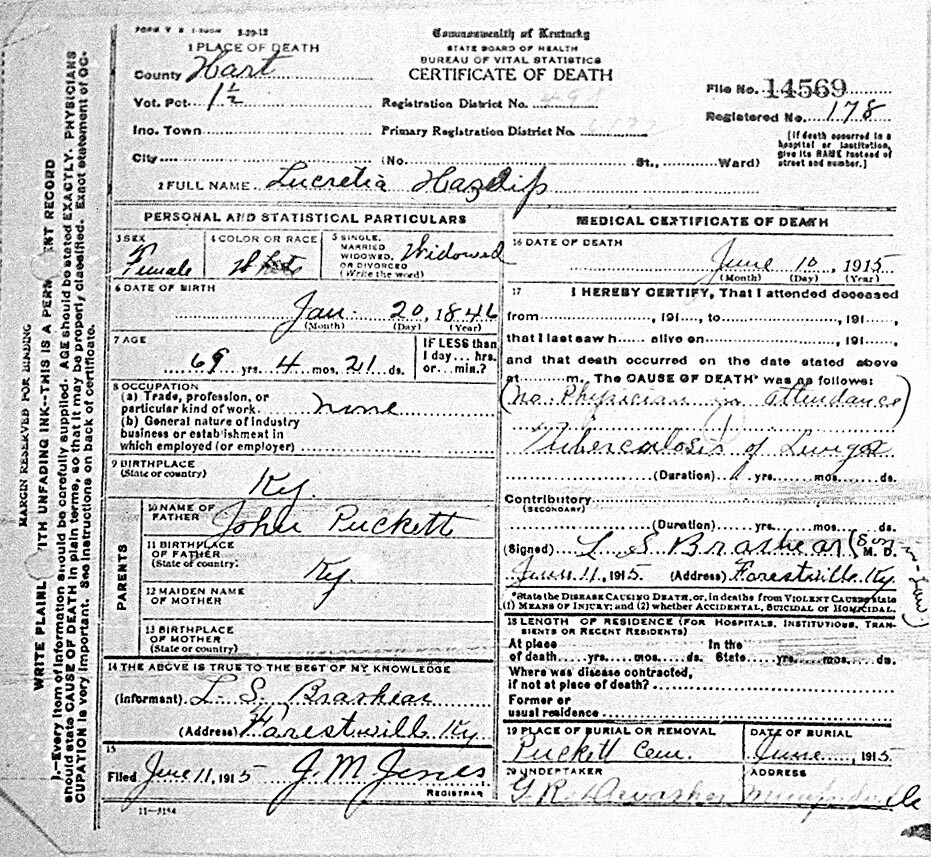 FORM V. S. 3-29-12
Commonwealth of Kentucky
STATE BOARD OF HEALTH
BUREAU OF VITAL STATISTICS
CERTIFICATE OF DEATH
1 PLACE OF DEATH
County Hart
Vot. Pct. 1 1/2
Inc. Town
City (No. St., Ward)
Registration District No.
Primary Registration District No.
File No. 14569
Registered No. 178
[If death occurred in a
hospital or institution,
give its NAME instead of
street and number.]
2 FULL NAME Lucretia Hazelip
PERSONAL AND STATISTICAL PARTICULARS
3 SEX
Female
4 COLOR OR RACE
White
5 SINGLE,
MARRIED
WIDOWED,
OR DIVORCED
(Write the word)
Widowed
6 DATE OF BIRTH
Jan. 20, 1846
(Month) (Day) (Year)
7 AGE
69 yrs. 4 mos. 21 ds.
IF LESS than
1 day... hrs.
or... min.?
8 OCCUPATION
(a) Trade, profession, or
particular kind of work none
(b) General nature of industry
business or establishment in
which employed (or employer)
9 BIRTHPLACE
(State or country)
Ky.
PARENTS
10 NAME OF
FATHER John Puckett
11 BIRTHPLACE
OF FATHER
(State of country)
Ky.
12 MAIDEN NAME
OF MOTHER
13 BIRTHPLACE
OF MOTHER
(State or country)
14 THE ABOVE IS TRUE TO THE BEST OF MY KNOWLEDGE
(Informant) L. S. Brashear
(Address) Forestville Ky.
15
Filed June 11, 1915 J. M. Jones
REGISTRAR
11-3184
MEDICAL CERTIFICATE OF DEATH
16 DATE OF DEATH
June 10, 1915
(Month) (Day) (Year)
17 I HEREBY CERTIFY, That I attended deceased
from , 191 , to , 191 ,
that I last saw h alive on , 191 ,
and that death occurred on the date stated above
at m. The CAUSE OF DEATH* was as follows:
(No Physician in attendance)
Tuberculosis of Lungs
(Duration) yrs. mos. ds.
Contributory
(SECONDARY)
(Duration) yrs. mos. ds.
(Signed) L. S. Brashear (Son in-law) M. D.
June 11, 1915 (Address) Forestville Ky.
*State the DISEASE CAUSING DEATH, or, in deaths from VIOLENT CAUSES, state
(1) MEANS OF INJURY; and (2) whether ACCIDENTAL, SUICIDAL or HOMICIDAL.
18 LENGTH OF RESIDENCE (FOR HOSPITALS, INSTITUTIONS, TRAN-
SIENTS OR RECENT RESIDENTS)
At place In the
of death yrs. mos. ds. State yrs. mos. ds.
Where was disease contracted,
if not at place of death?
Former or
usual residence
19 PLACE OF BURIAL OR REMOVAL
Puckett Cem.
DATE OF BURIAL
June , 1915
20 UNDERTAKER
ADDRESS
MARGIN RESERVED FOR BINDING
WRITE PLAINL ITH UNFADING INK--THIS IS A PERM ENT RECORD
.--Every item of information should be carefully supplied. AGE should be stated EXACTLY. PHYSICIANS
should state CAUSE OF DEATH in plain terms, so that it may be properly classified. Exact statement of OC-
CUPATION is very important. See instructions on back of certificate.